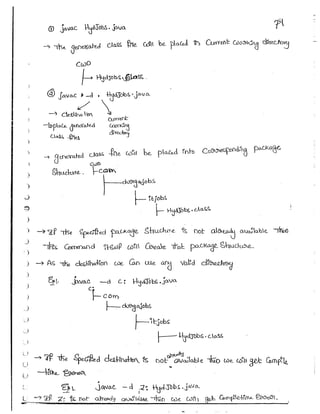 79
① javac HydJobs.java
→ The generated class file will be placed in current working directory
CWD
HydJobs.class
② javac -d . HydJobs.java
→ destination
to place generated
class files
current
working
directory
→ generated class file will be placed into corresponding package
structure.
cwd
com
durgajobs
itjobs
HydJobs.class
→ If the specified package structure is not already available then
this command itself will create that package structure.
→ As the destination we can use any valid directory
Ex: javac -d C: HydJobs.java
C:
com
durgajobs
itjobs
HydJobs.class
→ If the specified destination is not already available then we will get compile
time error
Ex: javac -d Z: HydJobs.java
→ If Z: is not already available then we will get compiletime error.